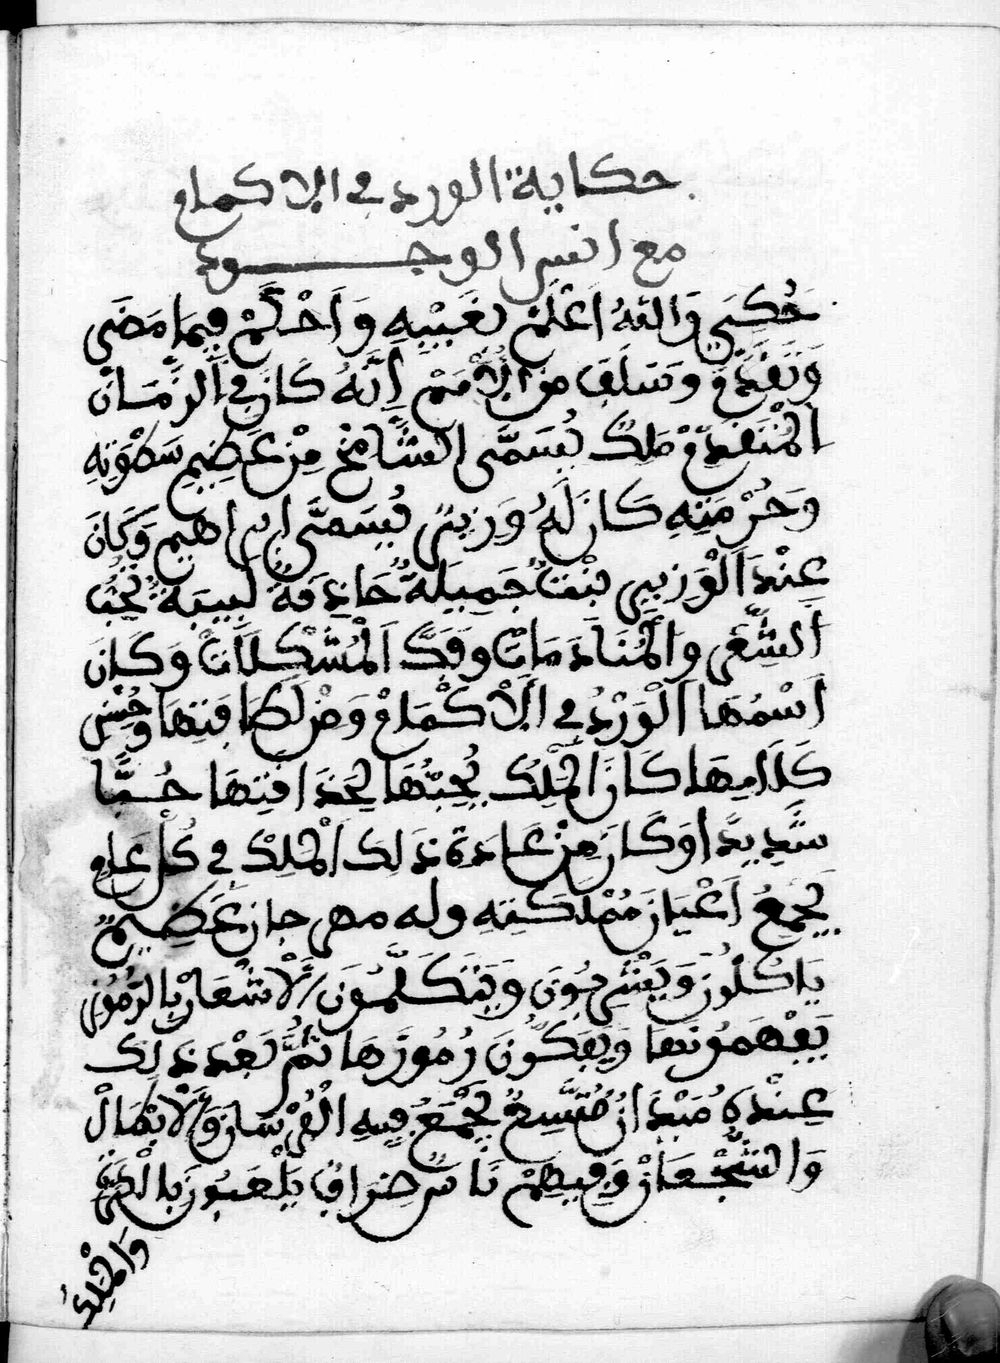 حكاية الورد في الاكمام
مع انس الوجـــود
حُكِيَ وَاللهُ اَعْلَمْ بغَيْبِهِ وَاَحْكَمْ فِيمَا مَضَى
وَتَقَدَّمَ وَسَلَفَ مِنَ الْأُمَمْ اِنَّهُ كَانَ فِي الزَّمَانْ
الْمُتَقَدِّمْ مَلِكٌ يُسَمَّى الشَّامِخْ مِنْ عَضِيمِ سَطْوَتِهِ
وَحُرْمَتِهِ كَانَ لَهُ وَزِيرٌ يُسَمَّى ابراهيم وَكَانَ
عِنْدَ الْوَزِيرِ بْنْتٌ جَمِيلَةٌ حَاذِقَةٌ لَبِيبَةٌ تُحِبُّ
الشِّعْرَ وَالْمُنَادَمَاتْ وَفَكَّ الْمُشْكِلَاتْ وَكَانَ
اسْمُهَا الْوَرْدُ في الْاَكْمَامْ وَمِنْ لَطَافَتِهَا وَحُسْنِ
كَلَامِهَا كَانَ الْمَلِكْ يُحِبُّهَا لِحَذَاقَتِهَا حُبًّا
شَدِيدًا وَكَانَ مِنْ عَادَةِ ذَلِكَ الْمَلِكْ في كُلّ عَامٍ
يَجْمَعُ اَعْيَانَ مَمْلَكَتِهِ وله مهرجان عَضِيمٌ
يَاكُلُونَ وَيَشْرَبُونَ وَيَتَكَلَّمُونَ الْاَشْعَارَ بِالرُّمُوزِ
يَفْهَمُونَهَا وَيَفِكُّونَ رُمُوزَهَا ثُمَّ بَعْدَ ذَلِكَ
عِنْدَهُ مَيْدَانٌ مُتَّسِعٌ يَجْمَعُ فِيهِ الْفُرْسَانَ وَالْاَبْطَالْ
وَالشُّجْعَانْ وَفِيهِمْ نَاسٌ ضِرَافٌ يَلْعَبُونَ بِالْكُرَةِ
وَالْمَلِكُ